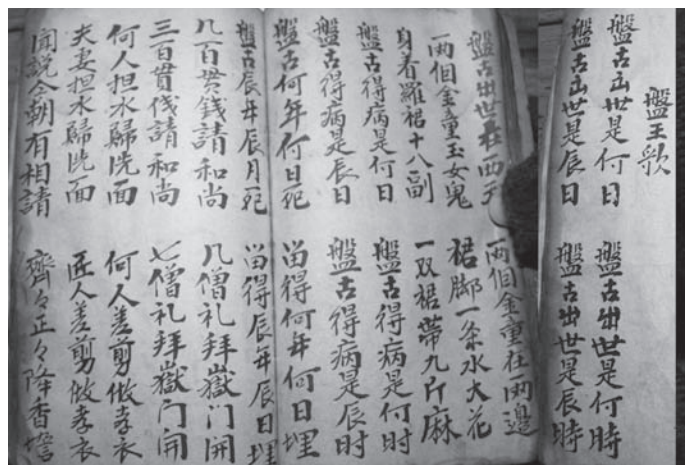 盤王歌
盤古出世是何日 盤古出世是何時
盤古出世是辰日 盤古出世是辰時
盤古出世在西天 兩個金童在兩邊
一兩個金童玉女鬼 裙脚一条水大花
身着羅裙十八副 一双裙帶九斤麻
盤古得病是何日 盤古得病是何时
盤古得病是辰日 盤古得病是辰时
盤古何年何日死 畄得何年何日埋
盤古辰年辰月死 畄得辰年辰日埋
几百贯錢請和尚 几僧礼拜嶽门開
三百贯伐請和尚 七僧礼拜嶽门開
何人担水歸洗面 何人差剪做孝衣
夫妻担水歸洗面 匠人差剪做孝衣
聞説今朝有相請 齊々正々降香